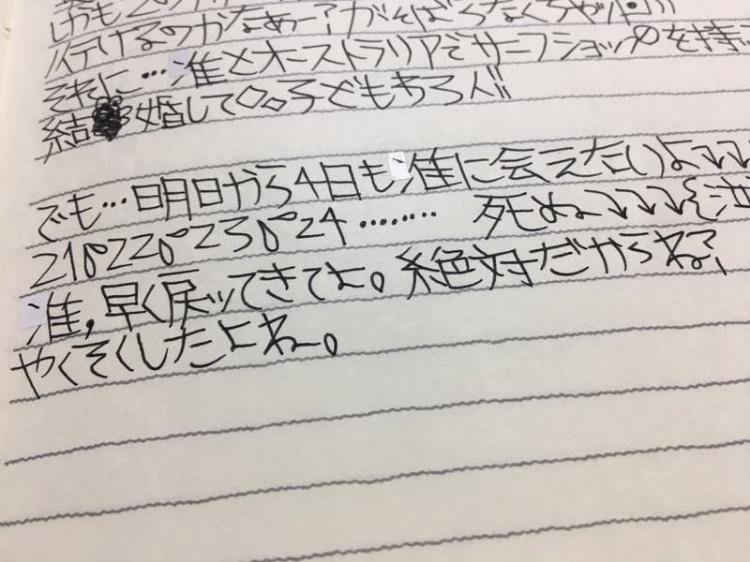 しかも
行けるのかなぁー?がそばらなくちゃ!!!
それに…准とオーストラリアでサーフショップを持
結婚して〇〇子どもちろん!!
でも…明日から4日も准に会えないよ↴↴↴
21〇22〇23〇24……… 死ぬ〜↴↴↴を泣
准,早く戻ッてきてよ。絶対だからね?
やくそくしたよね〜。